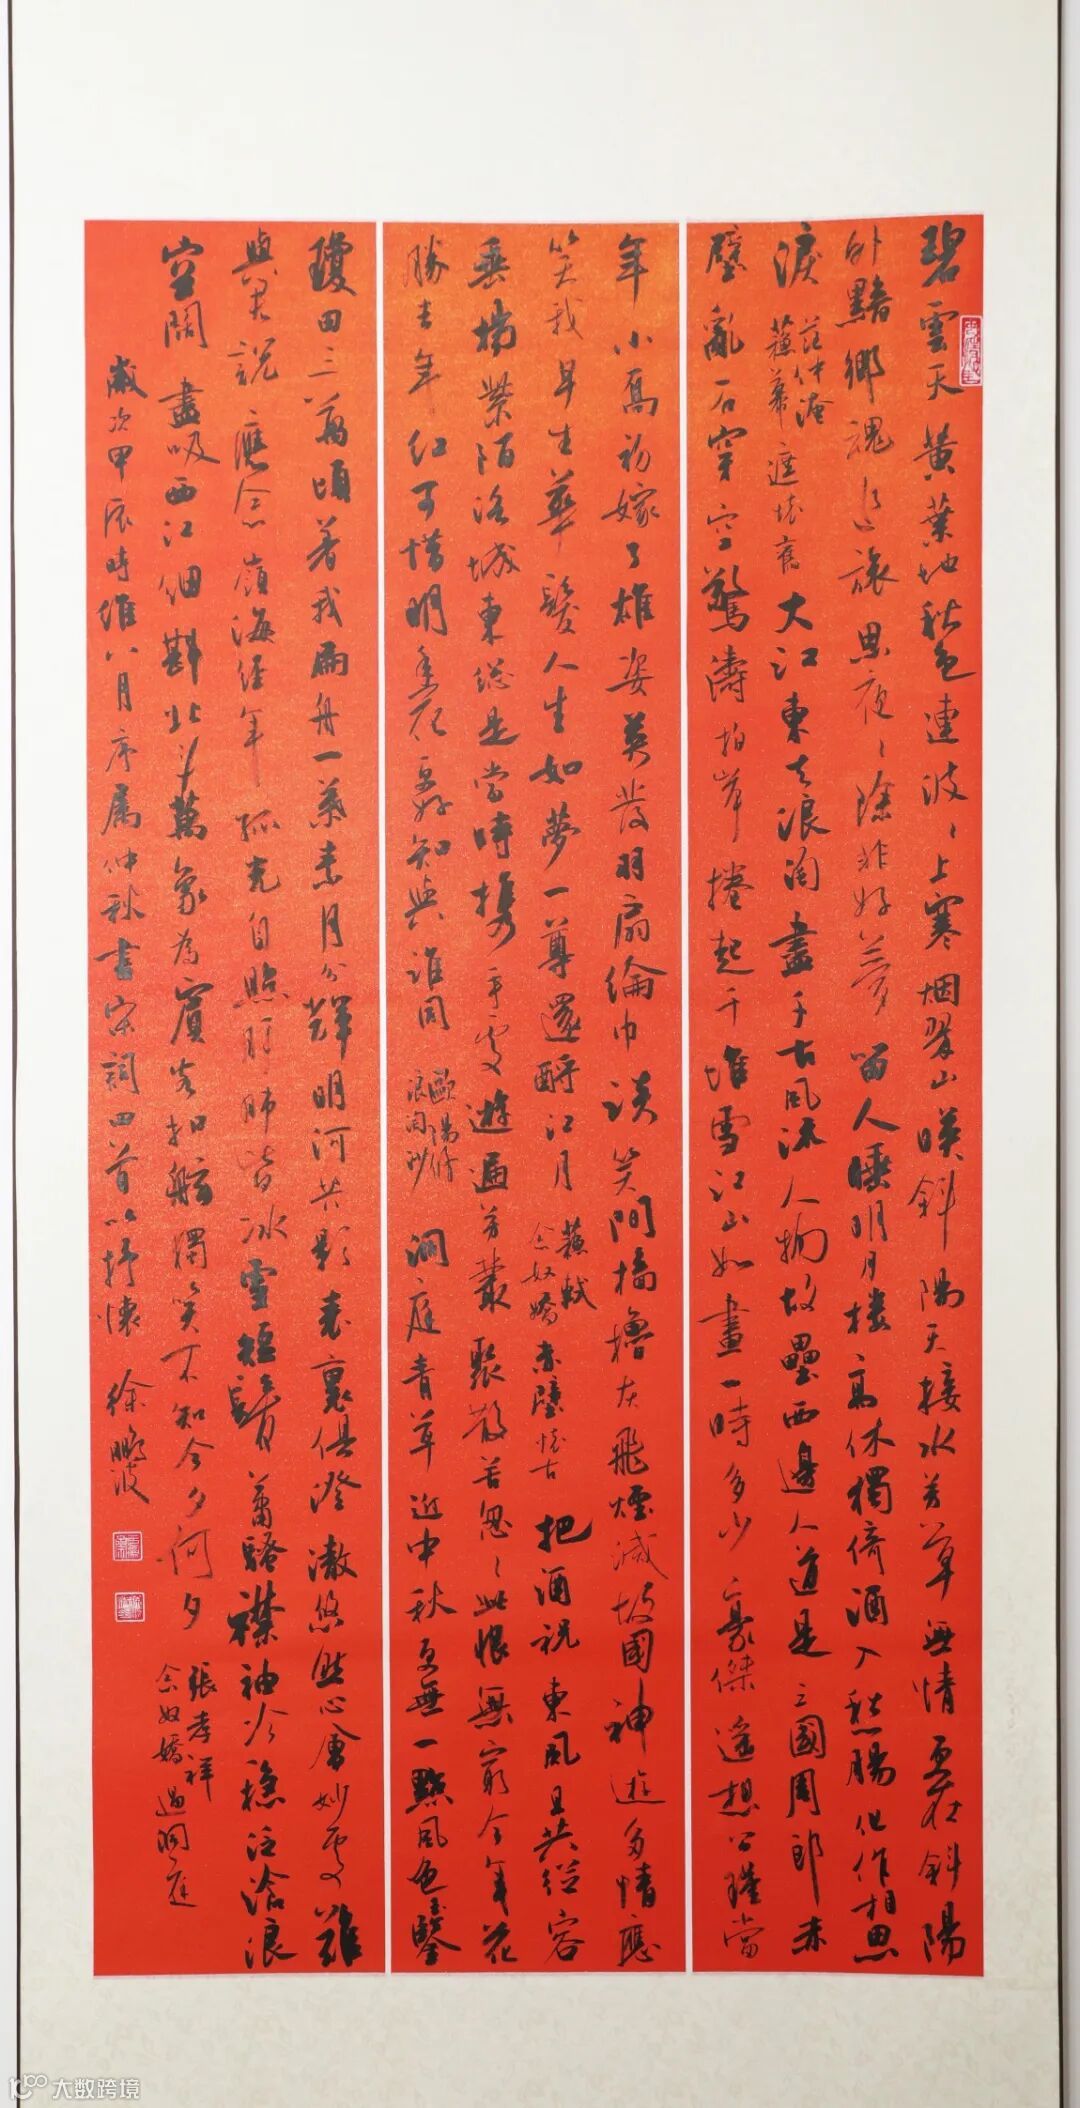 碧雲天黄葉地秋色連波〻上寒烟翠山映斜陽天接水芳草無情更在斜陽
外黯鄉魂追旅思夜〻除非好夢留人睡明月楼高休獨倚酒入愁腸化作相思
淚 范仲淹 蘇幕遮懷舊 大江東去浪淘盡千古風流人物故壘西邊人道是三國周郎赤
壁亂石穿空驚濤拍岸捲起千堆雪江山如畫一時多少豪傑遥想公瑾當
年小喬初嫁了雄姿英發羽扇綸巾談笑間檣櫓灰飛煙滅故國神遊多情應
笑我早生華髮人生如夢一尊還酹江月 蘇軾 念奴嬌赤壁懷古 把酒祝東風且共從容
垂楊紫陌洛城東總是當時携手處遊遍芳叢聚散苦匆〻此恨無窮今年花
勝去年紅可惜明年花更好知與誰同 歐陽修 浪淘沙 洞庭青草近中秋更無一點風色玉鑒
瓊田三萬頃着我扁舟一葉素月分輝明河共影表裏俱澄澈悠然心會妙處難
與君説應念嶺海經年孤光自照肝肺皆冰雪短鬢蕭騷襟袖冷穩泛滄浪
空闊盡吸西江细斟北斗萬象為賓客扣舷獨笑不知今夕何夕 張孝祥 念奴嬌過洞庭
歲次甲辰時維八月序属仲秋書宋詞四首以抒懷 徐鵬波
大数跨境